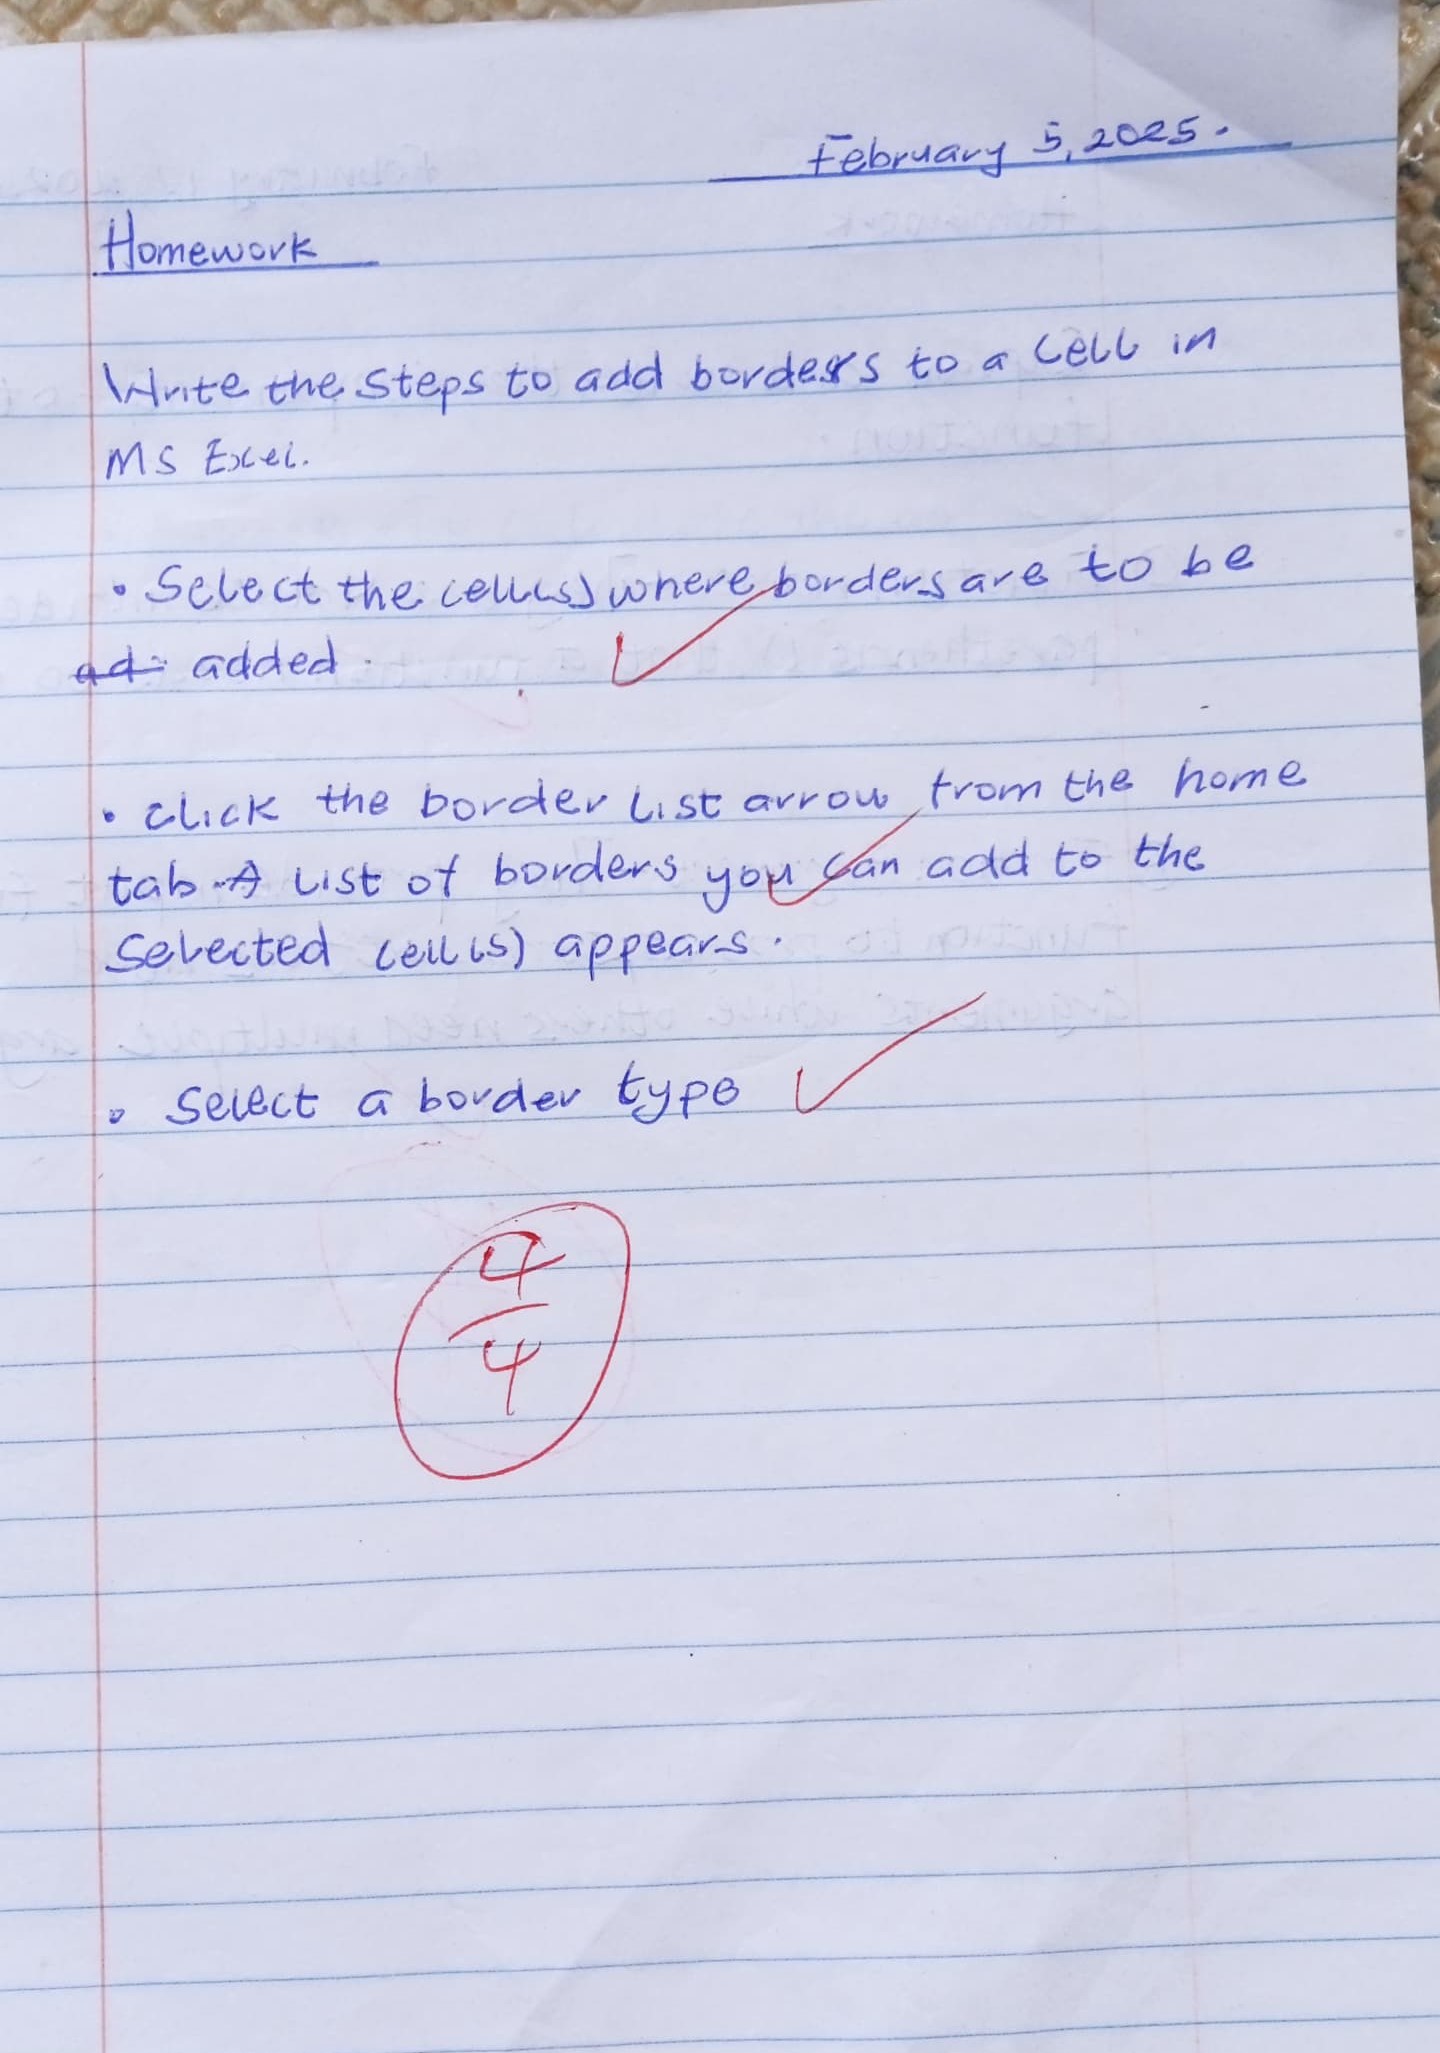 February 5, 2025.
Homework
Write the steps to add borders to a cell in
MS Excel.
• Select the cell(s) where borders are to be
ad added.
• click the border list arrow from the home
tab. A list of borders you can add to the
selected cell(s) appears.
• Select a border type
4
4